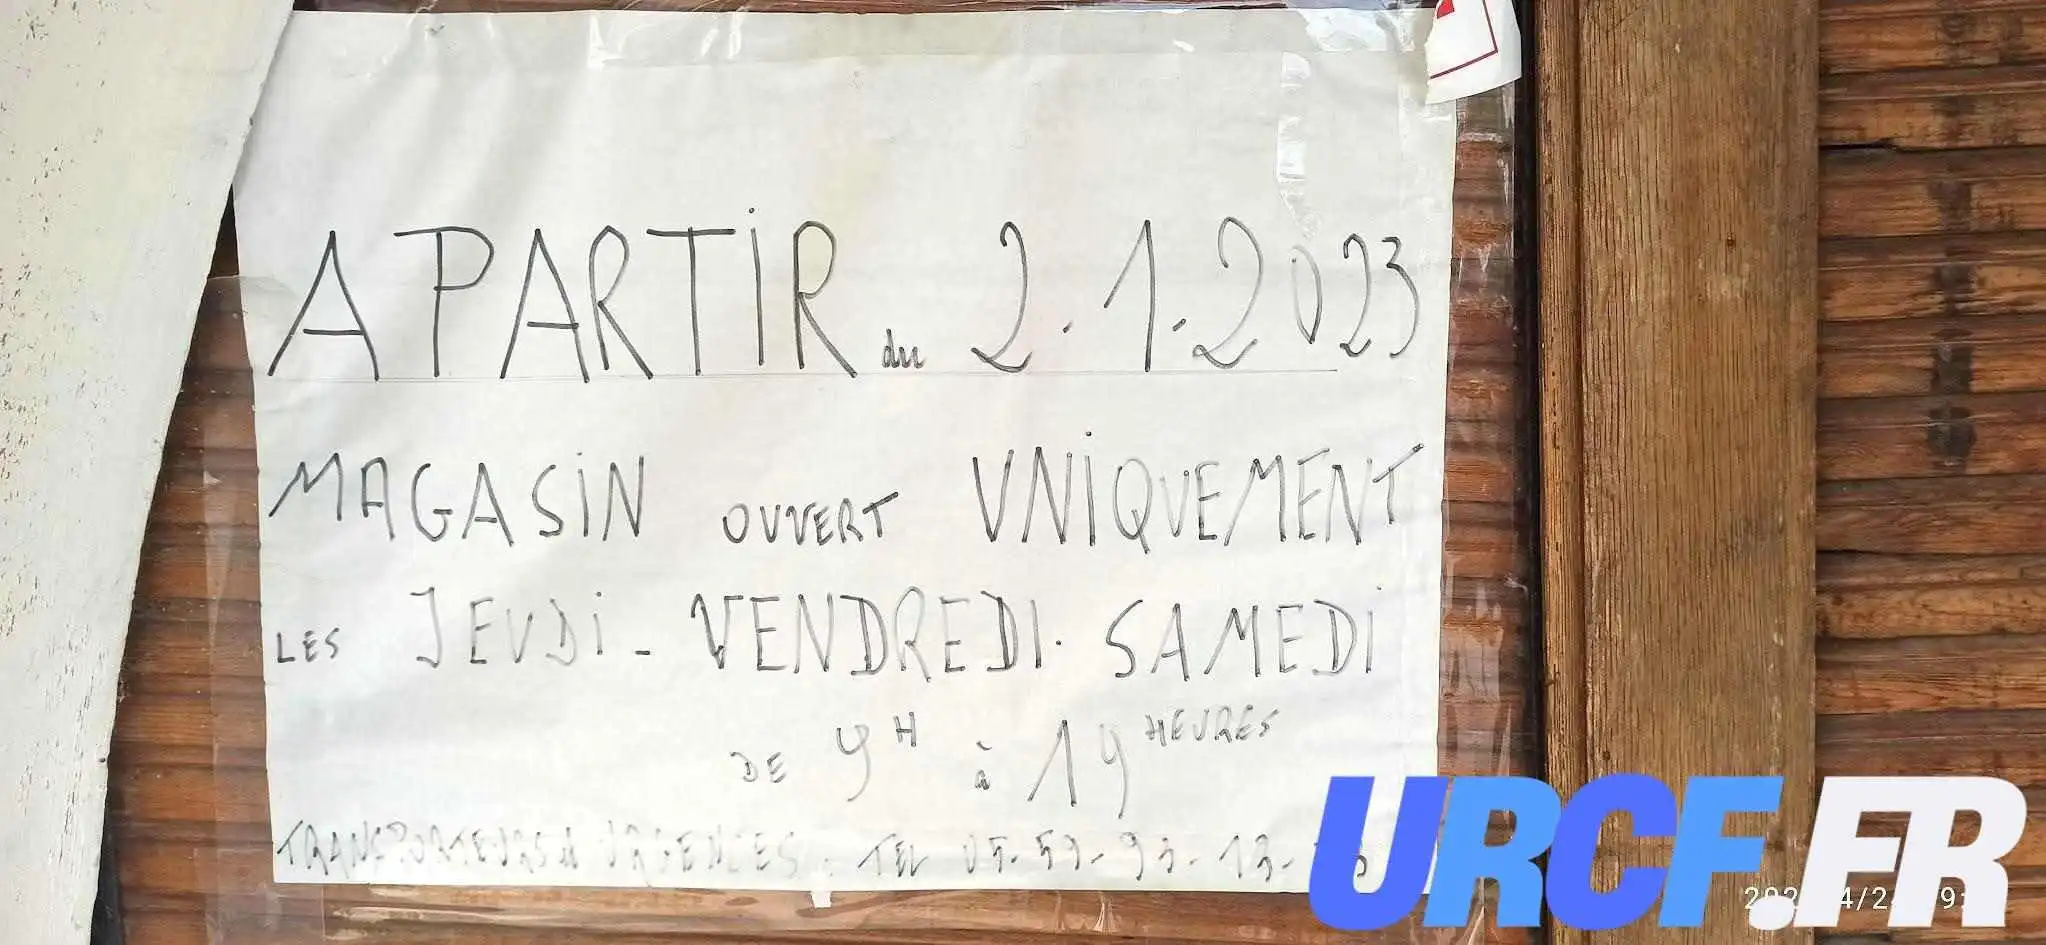 A PARTIR du 2.1.2023
MAGASIN OUVERT UNIQUEMENT
LES JEUDI - VENDREDI. SAMEDI
DE 9H à 19 HEURES
TRANSPORTEURS URGENCES. TEL 05-59-93-13-
URCF.FR